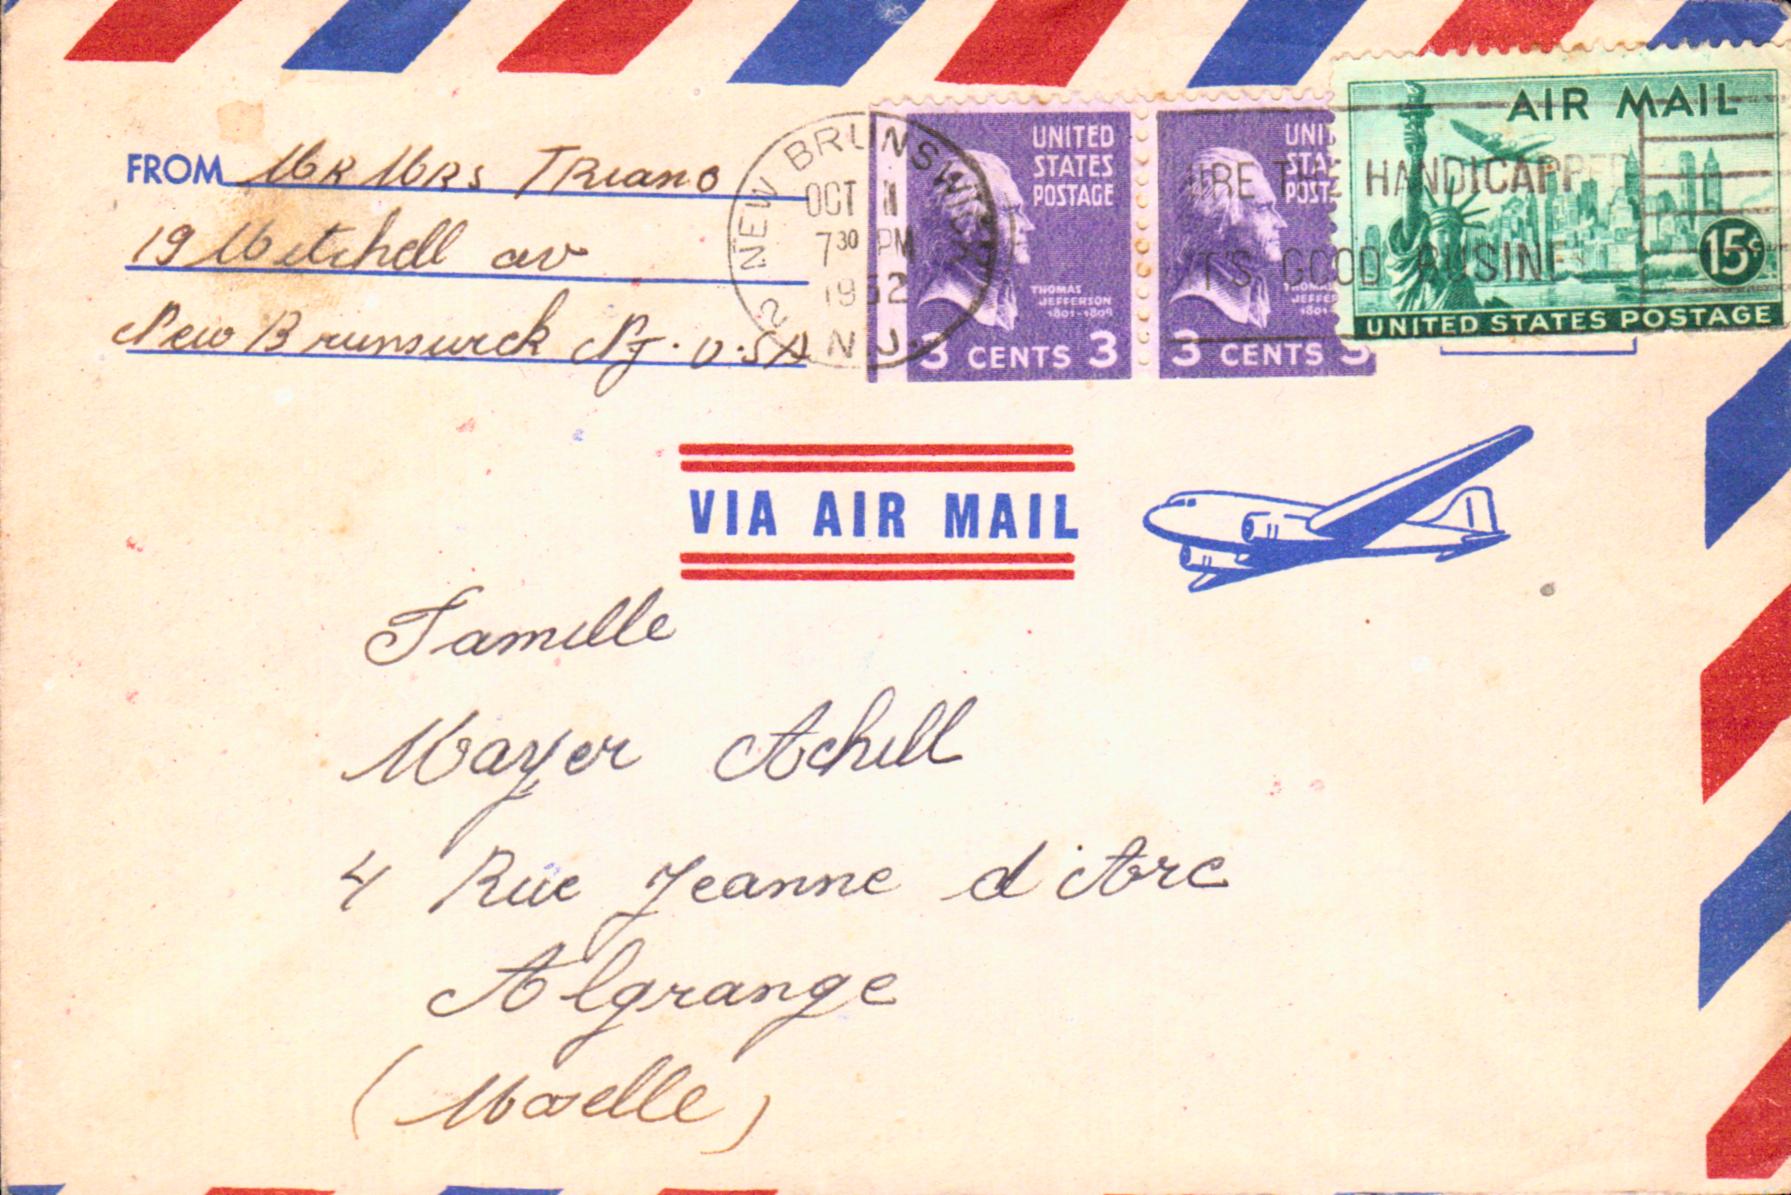 FROM Mr Mrs Triano
19 Mitchell av
New Brunswick N.J. U.S.A
NEW BRUNSWICK
OCT
7 30 PM
1952
2 N.J.
UNITED
STATES
POSTAGE
THOMAS
JEFFERSON
1801-1809
3 CENTS 3
UNIT
STA
POST
THOMA
JEFFER
1801
3 CENTS 3
THE HANDICAPPED
IT'S GOOD BUSINE
AIR MAIL
15¢
UNITED STATES POSTAGE
VIA AIR MAIL
Famille
Mayer Achill
4 Rue Jeanne d'Arc
Algrange
(Moselle)